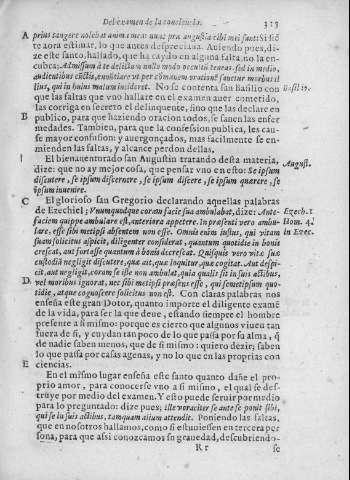 Del examen de la consciencia. 313
A prius tangere nolebat anima mea: nunc præ angustia cibi mei sunt: Si siẽ
te aora estimar, lo que antes despreciaua. Auiendo pues, di-
ze este santo, hallado, que ha caydo en alguna falta, no la en-
cubra: Admissum à te delictum nullo modo occultũ teneas, sed in medio,
audientibus cũctis, enuntiare vt per cõmunem orationẽ sanetur morbus il
lius, qui in huius malum inciderit. No se contenta san Basilio con Basil. ib.
que las faltas que vno hallare en el examen auer cometido,
las corriga en secreto el delinquente, sino que las declare en
B publico, para que haziendo oracion todos, se sanen las enfer
medades. Tambien, para que la confession publica, les cau-
se mayor confusion: y auergonçados, mas facilmente se en-
mienden las faltas, y alcance perdon dellas,
El bienauenturado san Augustin tratando desta materia, August.
dize: que no ay mejor cosa, que pensar vno en esto: Se ipsum
discutere, se ipsum discernere, se ipsum discere, se ipsum quærere, se
ipsum inuenire.
C El glorioso san Gregorio declarando aquellas palabras
de Ezechiel; Vnumquodque coram facie sua ambulabat, dize: Ante Ezech. 1
faciem quippe ambulare est, anteriora appetere. In præsenti vero ambu- Hom. 4.
lare, esse sibi metipsi absentem non esse. Omnis enim iustus, qui vitam in Ezec.
suam solicitus aspicit, diligenter considerat, quantum quotidie in bonis
crescat, aut fortasse quantum à bonis decrescat. Quisquis vero vitæ suæ
custodiã negligit discutere, quæ ait, quæ loquitur, quæ cogitat. Aut despi-
cit, aut negligit, coram se iste non ambulat, quia qualis sit in suis actibus,
D vel moribus ignorat, nec sibi metipsi præsens esse, qui semetipsum quo-
tidie, atque cognoscere solicitus non est. Con claras palabras nos
enseña este gran Dotor, quanto importe el diligente examẽ
de la vida, para ser la que deue, estando siempre el hombre
presente a si mismo: porque es cierto que algunos viuen tan
fuera de si, y cuydan tan poco de lo que passa por su alma, q̃
de nadie saben menos, que de si mismo: quiero dezir; saben
lo que passa por casas agenas, y no lo que en las proprias con
E ciencias.
En el mismo lugar enseña este santo quanto dañe el pro-
prio amor, para conocerse vno a si mismo, el qual se des-
truye por medio del examen. Y esto puede seruir por medio
para lo preguntado: dize pues: Ille veraciter se ante se ponit sibi,
qui se in suis actibus, tamquam alium attendit. Poniendo las faltas,
que en nosotros hallamos, como si estuuiessen en tercera per
sona, para que assi conozcamos su grauedad, descubriendo-
Rr se